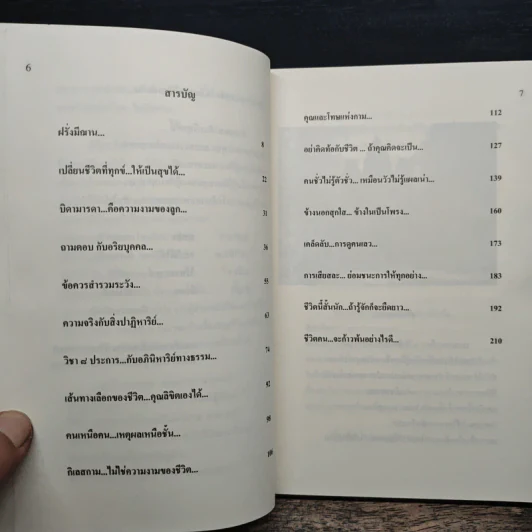 6
สารบัญ
ฝรั่งมีฌาน... 8
เปลี่ยนชีวิตที่ทุกข์...ให้เป็นสุขได้... 22
บิดามารดา...คือความงามของลูก... 31
ถามตอบ กับอริยบุคคล...
ข้อควรสำรวมระวัง...
ความจริงกับสิ่งปาฏิหาริย์...
วิชา ๘ ประการ...กับอภินิหาริย์ทางธรรม...
เส้นทางเลือกของชีวิต...คุณลิขิตเองได้...
คนเหนือคน...เหตุผลเหนือชั้น...
กิเลสกาม...ไม่ใช่ความงามของชีวิต...
7
คุณและโทษแห่งกาม... 112
อย่าคิดท้อกับชีวิต ... ถ้าคุณคิดจะเป็น... 127
คนชั่วไม่รู้ตัวชั่ว... เหมือนวัวไม่รู้แผลเน่า... 139
ข้างนอกสุกใส... ข้างในเป็นโพรง... 160
เคล็ดลับ...การดูคนเลว... 173
การเสียสละ... ย่อมชนะการให้ทุกอย่าง... 183
ชีวิตนี้สั้นนัก...ถ้ารู้จักก็จะยืดยาว... 192
ชีวิตคน...จะก้าวพ้นอย่างไรดี... 210